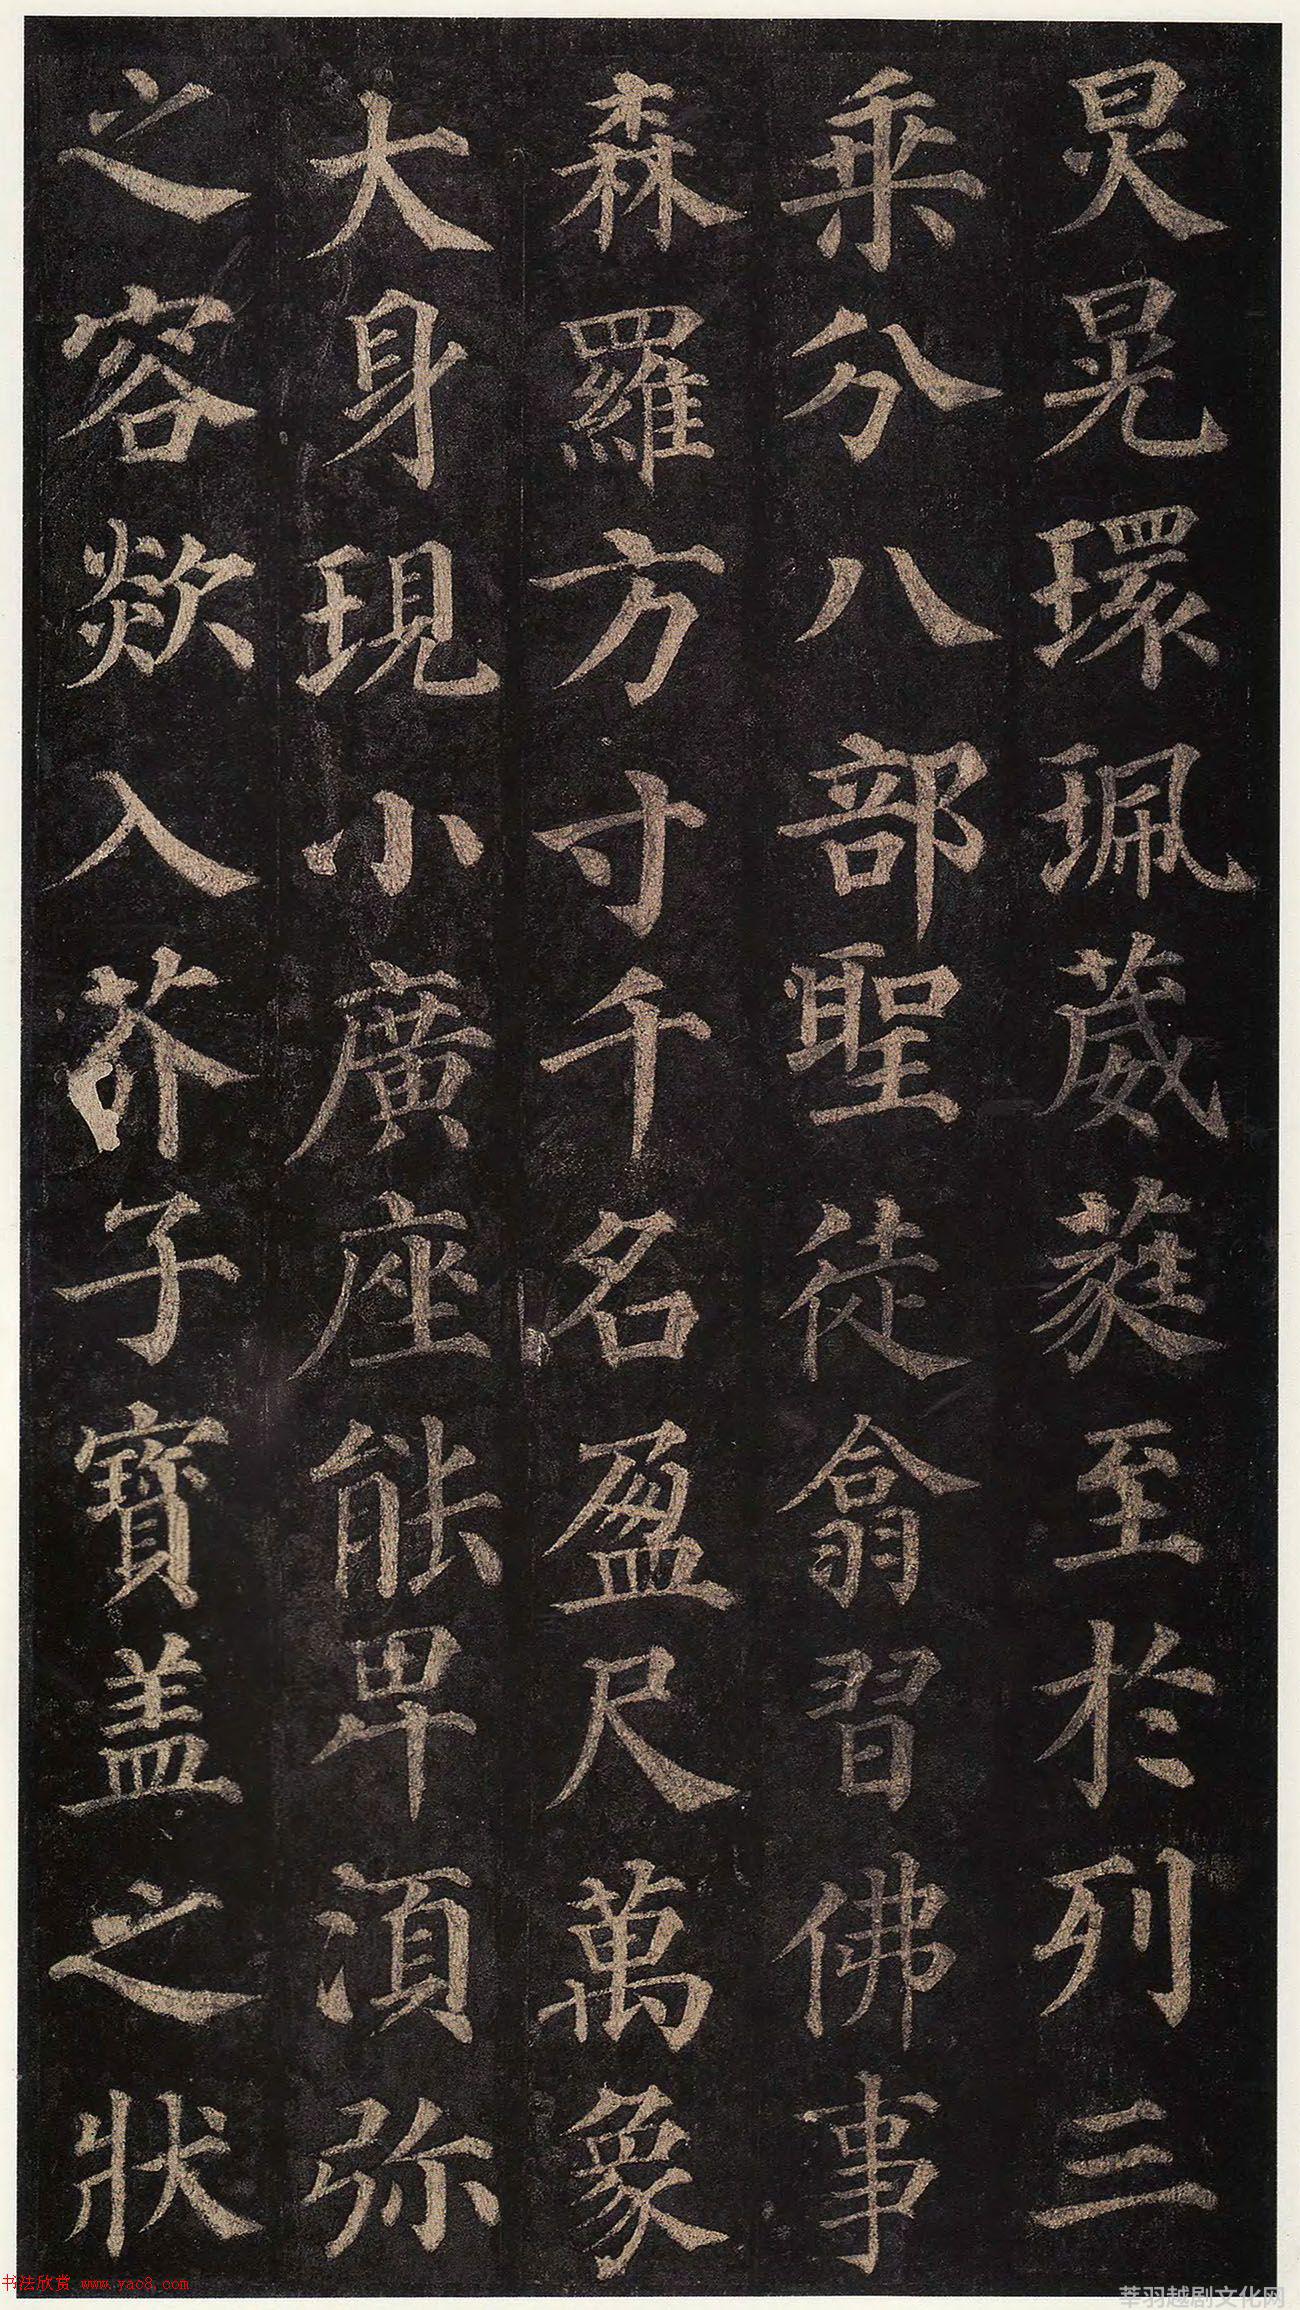 炅晃環珮葳蕤至於列三
乘分八部聖徒翕習佛事
森羅方寸千名盈尺萬象
大身現小廣座能卑須弥
之容欻入芥子寶盖之狀
书法欣赏 www.yac8.com
莘羽越剧文化网